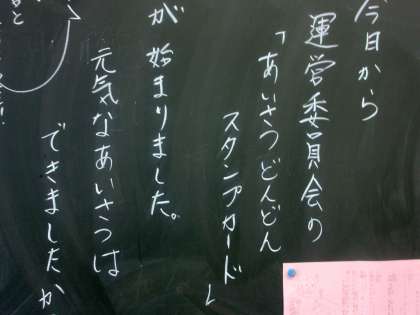 今日から
運営委員会の
「あいさつどんどん
スタンプカード」
が始まりました。
元気なあいさつは
できましたか